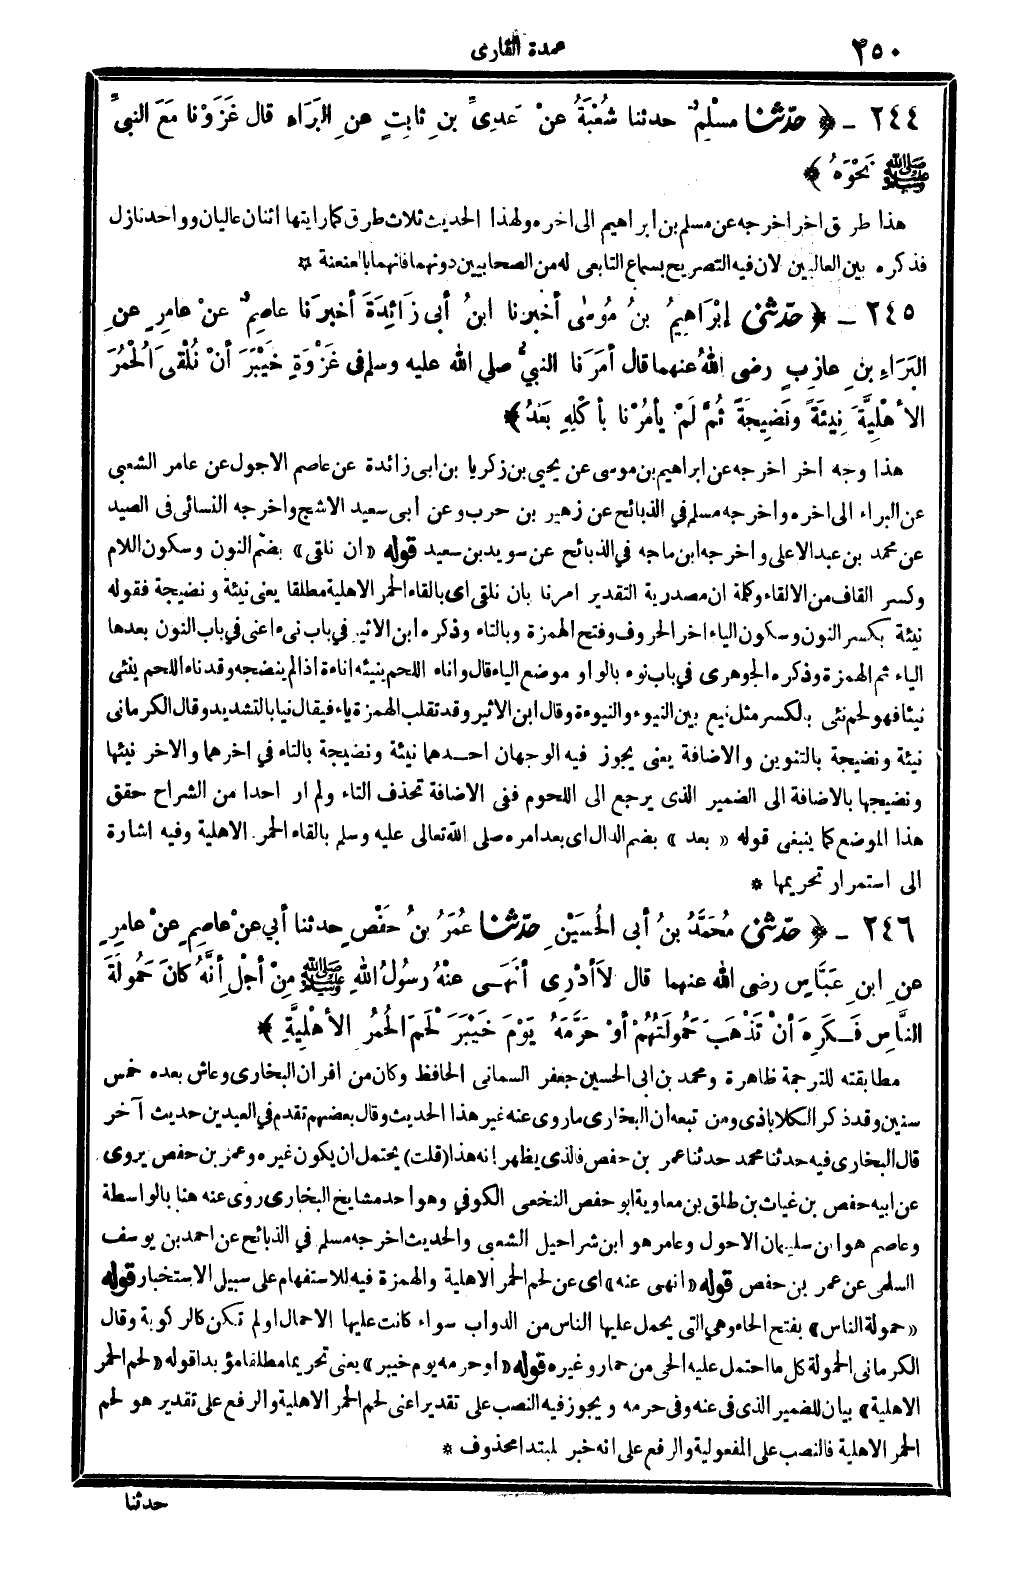 ٢٥٠ عمدة القارى
٢٤٤ - ﴿ حدّثنا مسْلِمٌ حدثنا شُعْبَةُ عنْ عَدِىِّ بنِ ثابِتٍ عنِ البَرَاءِ قال غَزَوْنا مَعَ النبىِّ
ﷺ نَحْوَهُ ﴾
هذا طريق اخر اخرجه عن مسلم بن ابراهيم الى اخره ولهذا الحديث ثلاث طرق كما رايتها اثنان عاليان وواحد نازل
فذكره بين العاليين لان فيه التصريح بسماع التابعى له من الصحابيين دونهما فانهما بالعنعنة *
٢٤٥ - ﴿ حدّثنى إبْرَاهِيمُ بنُ مُوسٰى أخبرنا ابنُ أبى زَائِدَةَ أخبرَنا عاصِمٌ عنْ عامِرٍ عنِ
البَرَاءِ بنِ عازِبٍ رضى اللهُ عنهما قال أمَرَنا النبىُّ صلى الله عليه وسلم فى غَزْوَةِ خَيْبَرَ أنْ نُلْقىَ الحُمُرَ
الأهْلِيَّةَ نِيئَةً ونَضِيجَةً ثُمَّ لَمْ يأمُرْنا بأكْلِهِ بَعْدُ ﴾
هذا وجه اخر اخرجه عن ابراهيم بن موسى عن يحيى بن زكريا بن ابى زائدة عن عاصم الاحول عن عامر الشعبى
عن البراء الى اخره واخرجه مسلم في الذبائح عن زهير بن حرب وعن أبى سعيد الاشج واخرجه النسائى فى الصيد
عن محمد بن عبد الاعلى واخرجه ابن ماجه في الذبائح عن سويد بن سعيد قوله « ان نلقى » بضم النون وسكون اللام
وكسر القاف من الالقاء وكلمة ان مصدرية التقدير امرنا بان نلقى اى بالقاء الحمر الاهلية مطلقا يعنى نيئة ونضيجة فقوله
نيئة بكسر النون وسكون الياء اخر الحروف وفتح الهمزة وبالتاء وذكره ابن الاثير في باب نىء اعنى في باب النون بعدها
الياء ثم الهمزة وذكره الجوهرى في باب نوء بالواو موضع الياء قال واناء اللحم ينيئه اناءة اذا لم ينضجه وقد ناء اللحم ينئى
نيئا فهو لحم نئى بالكسر مثل نيع بين النيوء والنيوءة وقال ابن الاثير وقد تقلب الهمزة ياء فيقال نيا بالتشديد وقال الكرمانى
نيئة ونضيجة بالتنوين والاضافة يعنى يجوز فيه الوجهان احدهما نيئة ونضيجة بالتاء في اخرهما والاخر نيئها
ونضيجها بالاضافة الى الضمير الذى يرجع الى اللحوم ففى الاضافة تحذف التاء ولم ار احدا من الشراح حقق
هذا الموضع كما ينبغى قوله « بعد » بضم الدال اى بعد امره صلى الله تعالى عليه وسلم بالقاء الحمر الاهلية وفيه اشارة
الى استمرار تحريمها *
٢٤٦ - ﴿ حدّثنى مُحمَّدُ بنُ أبى الحُسَيْنِ حدّثنا عُمَرُ بنُ حَفْصٍ حدثنا أبي عنْ عاصِمٍ عنْ عامِرٍ
عنِ ابنِ عَبَّاسٍ رضى الله عنهما قال لاَ أدْرِى أنَهَى عنْهُ رسُولُ اللهِ ﷺ مِنْ أجْلِ أنَّهُ كانَ حَمُولَةَ
النَّاسِ فَكَرِهَ أنْ تَذْهَبَ حَمُولَتُهُمْ أوْ حَرَّمَهُ يَوْمَ خَيْبَرَ لَحْمَ الحُمُرِ الأهْلِيَّةِ ﴾
مطابقته للترجمة ظاهرة ومحمد بن ابى الحسين جعفر السمنانى الحافظ وكان من اقران البخارى وعاش بعده خمس
سنين وقد ذكر الكلاباذى ومن تبعه أن البخارى ما روى عنه غير هذا الحديث وقال بعضهم تقدم في العيدين حديث آخر
قال البخارى فيه حدثنا محمد حدثنا عمر بن حفص فالذى يظهر انه هذا (قلت) يحتمل ان يكون غيره وعمر بن حفص يروى
عن ابيه حفص بن غياث بن طلق بن معاوية ابو حفص النخعى الكوفي وهو احد مشايخ البخارى روى عنه هنا بالواسطة
وعاصم هو ابن سليمان الاحول وعامر هو ابن شراحيل الشعبى والحديث اخرجه مسلم في الذبائح عن احمد بن يوسف
السلمى عن عمر بن حفص قوله « انهى عنه » اى عن لحم الحمر الاهلية والهمزة فيه للاستفهام على سبيل الاستخبار قوله
« حمولة الناس » بفتح الحاء وهى التى يحمل عليها الناس من الدواب سواء كانت عليها الاحمال او لم تكن كالركوبة وقال
الكرمانى الحمولة كل ما احتمل عليه الحى من حمار وغيره قوله « او حرمه يوم خيبر » يعنى تحريما مطلقا مؤبدا قوله « لحم الحمر
الاهلية » بيان للضمير الذى فى عنه وفى حرمه ويجوز فيه النصب على تقدير اعنى لحم الحمر الاهلية والرفع على تقدير هو لحم
الحمر الاهلية فالنصب على المفعولية والرفع على انه خبر لمبتدا محذوف *
حدثنا